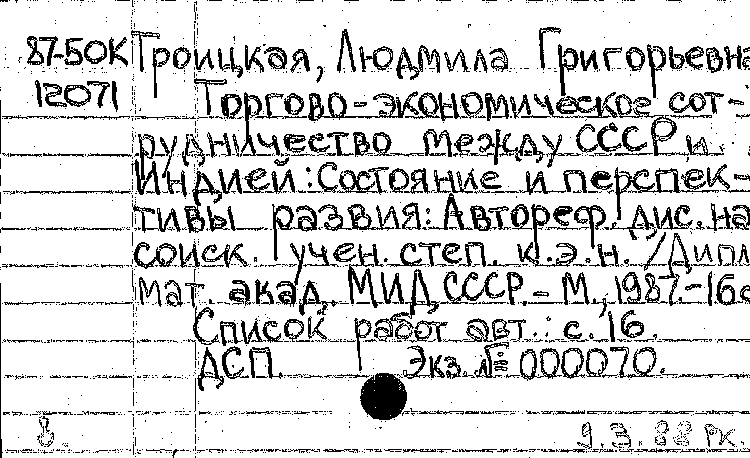 87-50К Троицкая, Людмила Григорьевна
12071 Торгово-экономическое сот-
рудничество между СССР и
Индией: Состояние и перспек-
тивы развия: Автореф. дис. на
соиск. учен. степ. к.э.н. /Дипл
мат. акад. МИД СССР. - М., 1987.-16с
Список работ авт.: с. 16.
ДСП. Экз. № 000070.
8. 9.3.88 РК.